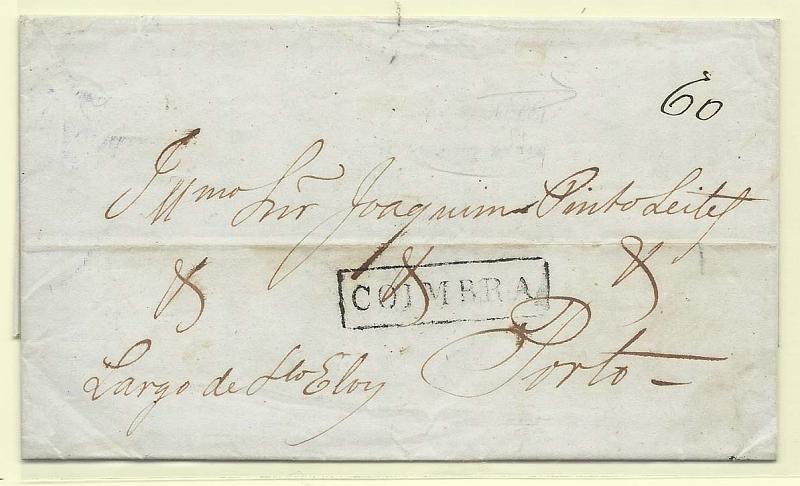 60
Illmo Snr Joaquim Pinto Leite
& & &
COIMBRA
Largo de Sto Eloy Porto –